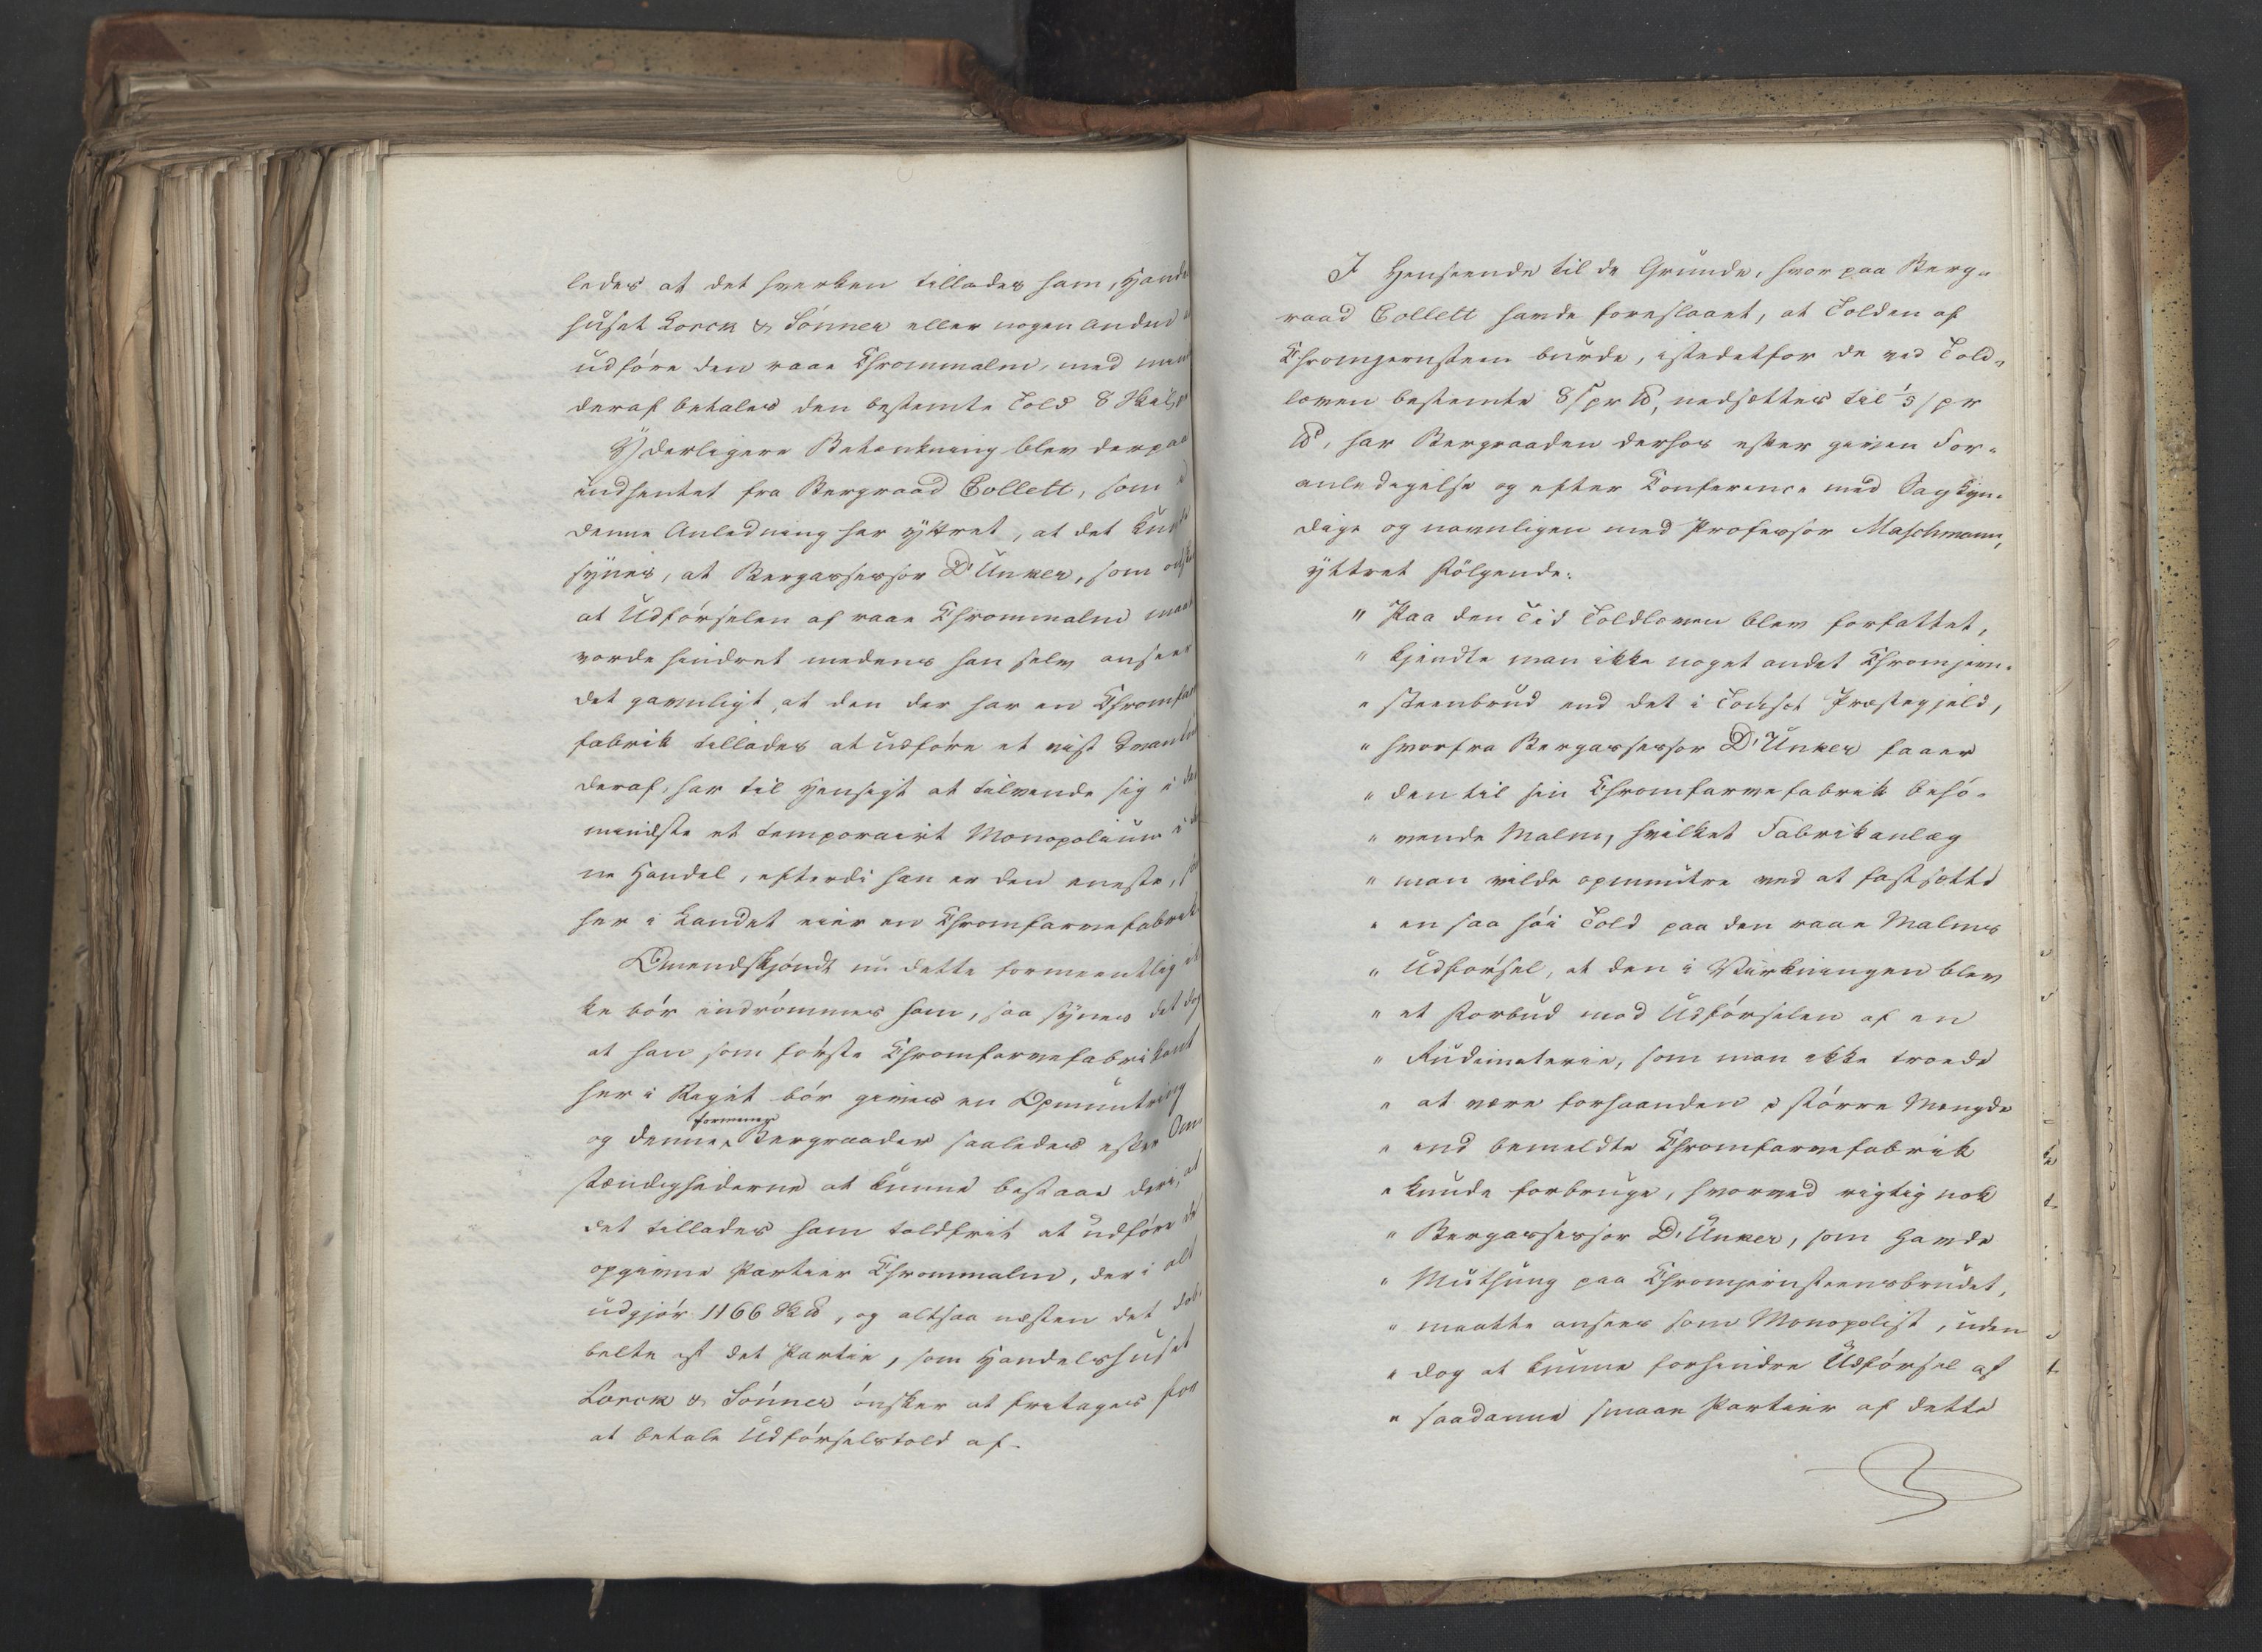 ledes at det hverken tillades ham, Hand
huset Lorck & Sønner eller nogen Anden
udføre den raae Chrommalm, med mind
deraf betales den bestemte Told 8 Skil
Yderligere Betænkning blev derpaa
indhentet fra Bergraad Collett, som i
denne Anledning har yttret, at det kun
synes, at Bergassessor D'Unker, som
at Udførselen af raae Chrommalm maa
vorde hindret medens han selv anseer
det gavnligt, at den der har en Chromfar
fabrik tillades at udføre et vist Qvantu
deraf, har til Hensigt at tilvende sig i
mindste et temporairt Monopolium i
ne Handel, efterdi han er den eneste,
her i Landet eier en Chromfarvefabrik
Omendskjøndt nu dette formeentlig ik
ke bør indrømmes ham, saa synes det dog
at han som første Chromfarvefabrikant
her i Riget bør gives en Opmuntring
formener
og denne Bergraader saaledes efter Om
stændighederne at kunne bestaae deri, at
det tillades ham toldfrit at udføre de
opgivne Partier Chrommalm, der i alt
udgjør 1166 Sk℔, og altsaa næsten det dob,
belte af det Partie, som Handelshuset
Lorck & Sønner ønsker at fritages for
at betale Udførselstold af.
I Henseende til de Grunde, hvorpaa Berg„
raad Collett havde foreslaaet, at Tolden af
Chromjernsteen burde, istedetfor de ved Told„
loven bestemte 8 ſ pr ℔, nedsættes til 1/3 ſ pr
℔, har Bergraaden derhos efter given For„
anledigelse og efter Conference med Sagkyn„
dige og navnligen med Professor Maschmann,
yttret Følgende:
" Paa den Tid Toldloven blev forfattet,
" kjendte man ikke noget andet Chromjern„
" steenbrud end det i Tønset Præstegjeld,
" hvorfra Bergassessor D'Unker faaer
" den til sin Chromfarvefabrik behø„
" vende Malm, hvilket Fabrikanlæg
" man vilde opmuntre ved at fastsætte
" en saa høi Told paa den raae Malms
" Udførsel, at den i Virkningen blev
" et Forbud mod Udførselen af en
" Rudimaterie, som man ikke troede
" at være forhaanden i større Mængde
" end bemeldte Chromfarvefabrik
" kunde forbruge, hvorved rigtig nok
" Bergassessor D'Unker, som havde
" Muthung paa Chromjernsteensbrudet,
" maatte ansees som Monopolist, uden
" dog at kunne forhindre Udførsel af
" saadanne smaae Partier af dette